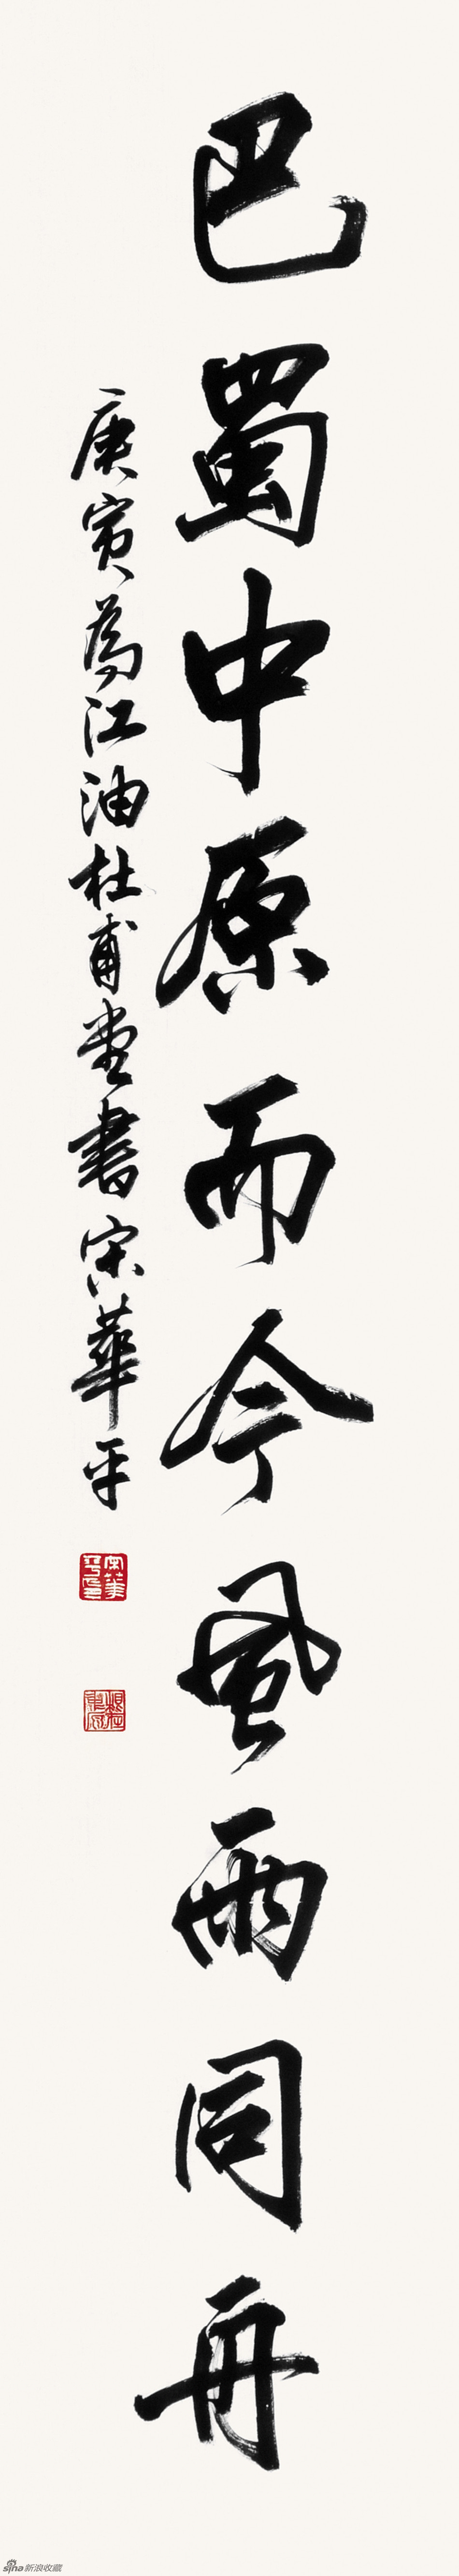 巴蜀中原而今風雨同舟
庚寅為江油杜甫堂書宋華平
宋華平印
sina新浪收藏